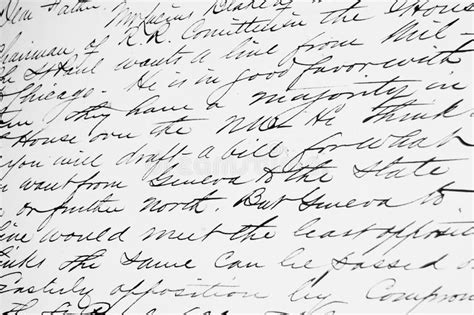 Dear Father. the House
Chairman of R.R. Committee in the
St Paul wants a line from Mil-
Chicago. He is in good favor with
they have a majority in
House over the He think
you will draft a bill for what
want from Geneva to the State
or further north. But Geneva to
line would meet the least opposi
the same can be passed
opposition by Comprom